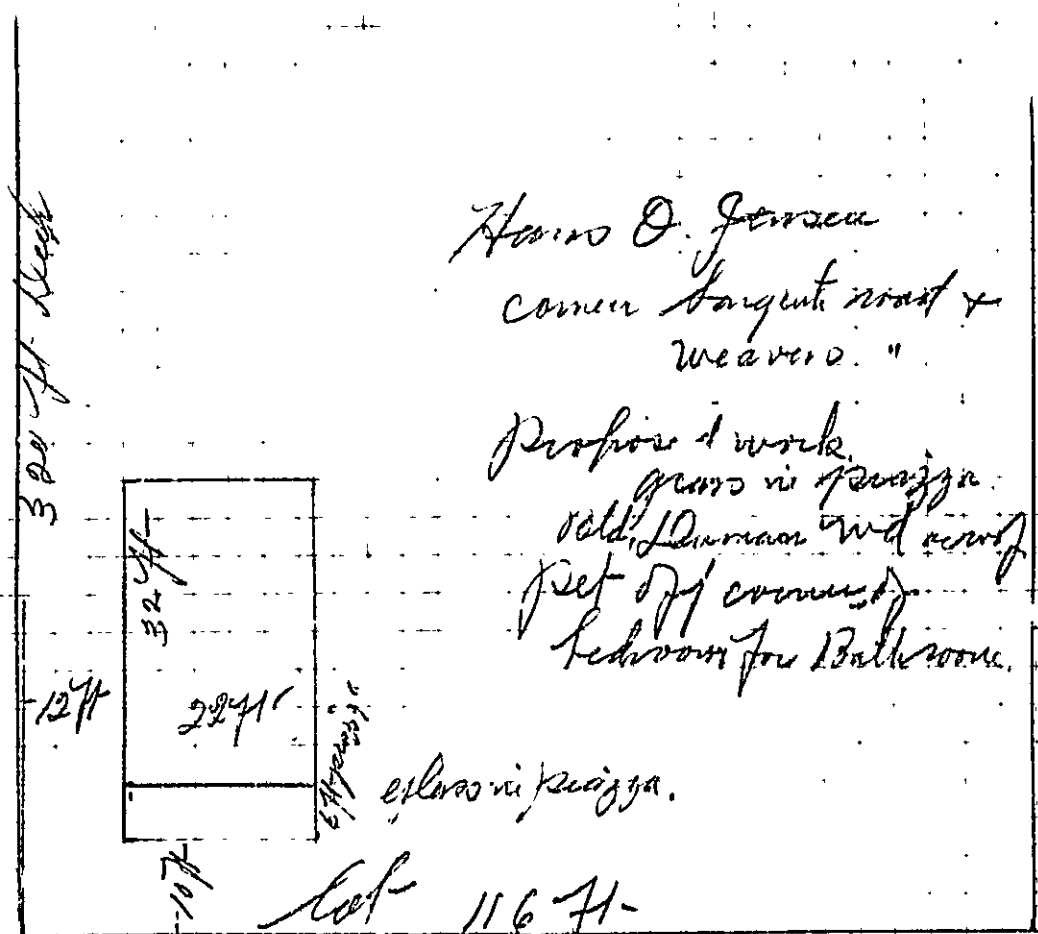 Hans O. Jensen
corner road &
weavers. "
Proposed work.
glass in piazza
add, Dormer and roof
set off corner of
bedroom for Bathroom.
ft Deep
32 ft
12 ft
22 ft
6 ft piazza
glass in piazza.
10 ft
Lot 116 ft